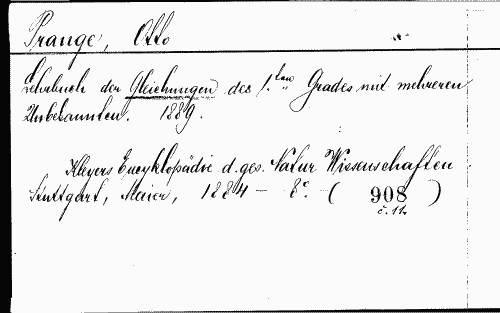 Prange, Otto
Lehrbuch der Gleichungen des 1.ten Grades mit mehreren
Unbekannten. 1889.
Kleyers Encyklopädie d. ges. Natur Wissenschaften
Stuttgart, Maier, 1884 – 8° – (908)
č. 11.